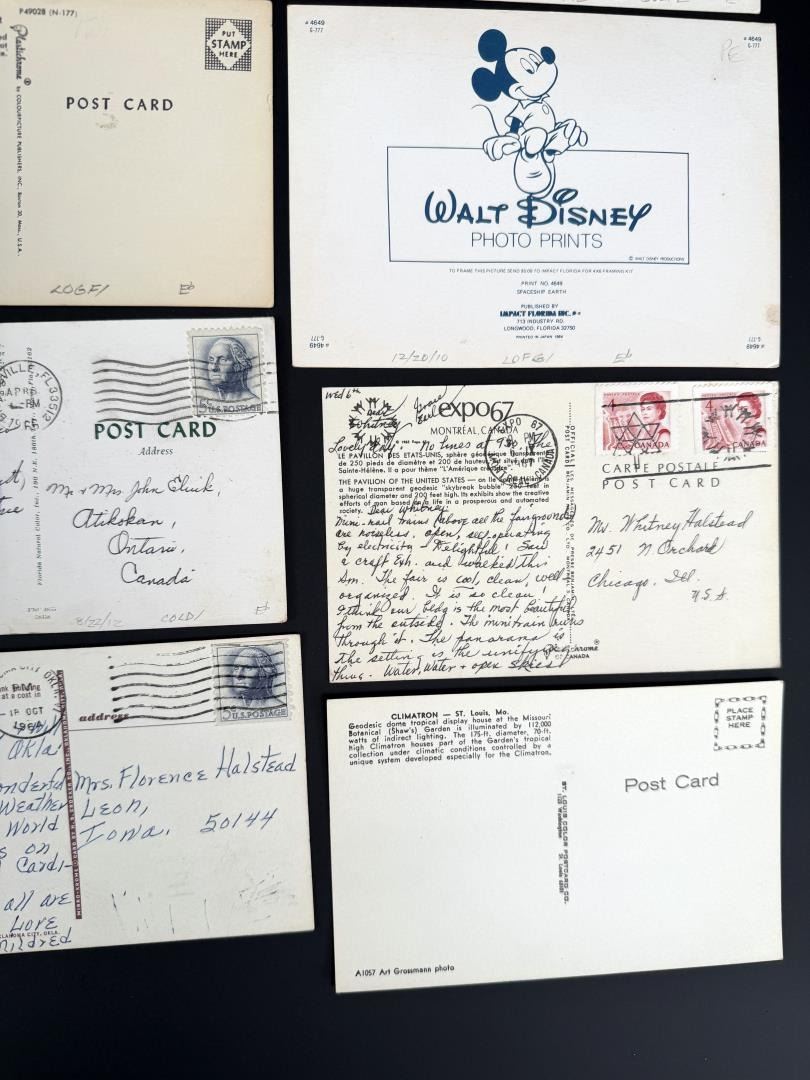 P49028 (N-177)
Plastichrome ®
by COLOURPICTURE PUBLISHERS, INC., Boston 30, Mass., U.S.A.
PUT
STAMP
HERE
POST CARD
LOGF1 Eb
# 4649
G-777
# 4649
G-777
PE
WALT DISNEY
PHOTO PRINTS
© WALT DISNEY PRODUCTIONS
TO FRAME THIS PICTURE SEND $5.00 TO IMPACT FLORIDA FOR 4X6 FRAMING KIT
PRINT NO. 4649
SPACESHIP EARTH
PUBLISHED BY
IMPACT FLORIDA INC.
713 INDUSTRY RD.
LONGWOOD, FLORIDA 32750
PRINTED IN JAPAN 1984
# 4649
G-777
# 4649
G-777
12/20/10 LOFG1 Eb
VILLE, FL 33512
APR 6
PM
5¢ U.S. POSTAGE
POST CARD
Address
Mr & Mrs. John
Atikokan,
Ontario,
Canada
Florida Natural Color, Inc.
8/22/12 COLD1 Eb
Wed 6th
Dear
Whitney
expo67
MONTRÉAL, CANADA
Lovely day! No lines at 9:30. The
LE PAVILLON DES ETATS-UNIS, sphère géodésique transparente
de 250 pieds de diamètre et 200 de hauteur, est situé dans l'île
Sainte-Hélène. Il a pour thème "L'Amérique créatrice".
THE PAVILION OF THE UNITED STATES — on Ile Sainte-Hélène is
a huge transparent geodesic "skybreak bubble" 250 feet in
spherical diameter and 200 feet high. Its exhibits show the creative
efforts of man based on a life in a prosperous and automated
society.
Dear Whitney:
Mini-rail trains above all the fairgrounds
are noiseless, open, self operating
by electricity. Delightful! Saw
a craft Exh. and walked this
Am. The fair is cool, clean, well
organized. It is so clean!
I think our bldg is the most beautiful
from the outside. The minitrain runs
through it. The panorama is
the setting is the unifying
thing. Water, Water + open skies
EXPO 67
PM
CANADA
4 CANADA
4 CANADA
CARTE POSTALE
POST CARD
Ms. Whitney Halstead
2451 N. Orchard
Chicago, Ill.
U.S.A
18 OCT
5¢ U.S. POSTAGE
address
at a cost in
Okla
Wonderful
Weather
World
on
Cardi-
all are
Love
Mildred
OKLAHOMA CITY, OKLA.
Mrs. Florence Halstead
Leon,
Iowa. 50144
CLIMATRON — ST. Louis, Mo.
Geodesic dome tropical display house at the Missouri
Botanical (Shaw's) Garden is illuminated by 112,000
watts of indirect lighting. The 175-ft. diameter, 70-ft.
high Climatron houses part of the Garden's tropical
collection under climatic conditions controlled by a
unique system developed especially for the Climatron.
PLACE
STAMP
HERE
Post Card
ST. LOUIS COLOR POSTCARD CO.
1125 Washington St. Louis
A1057 Art Grossmann photo